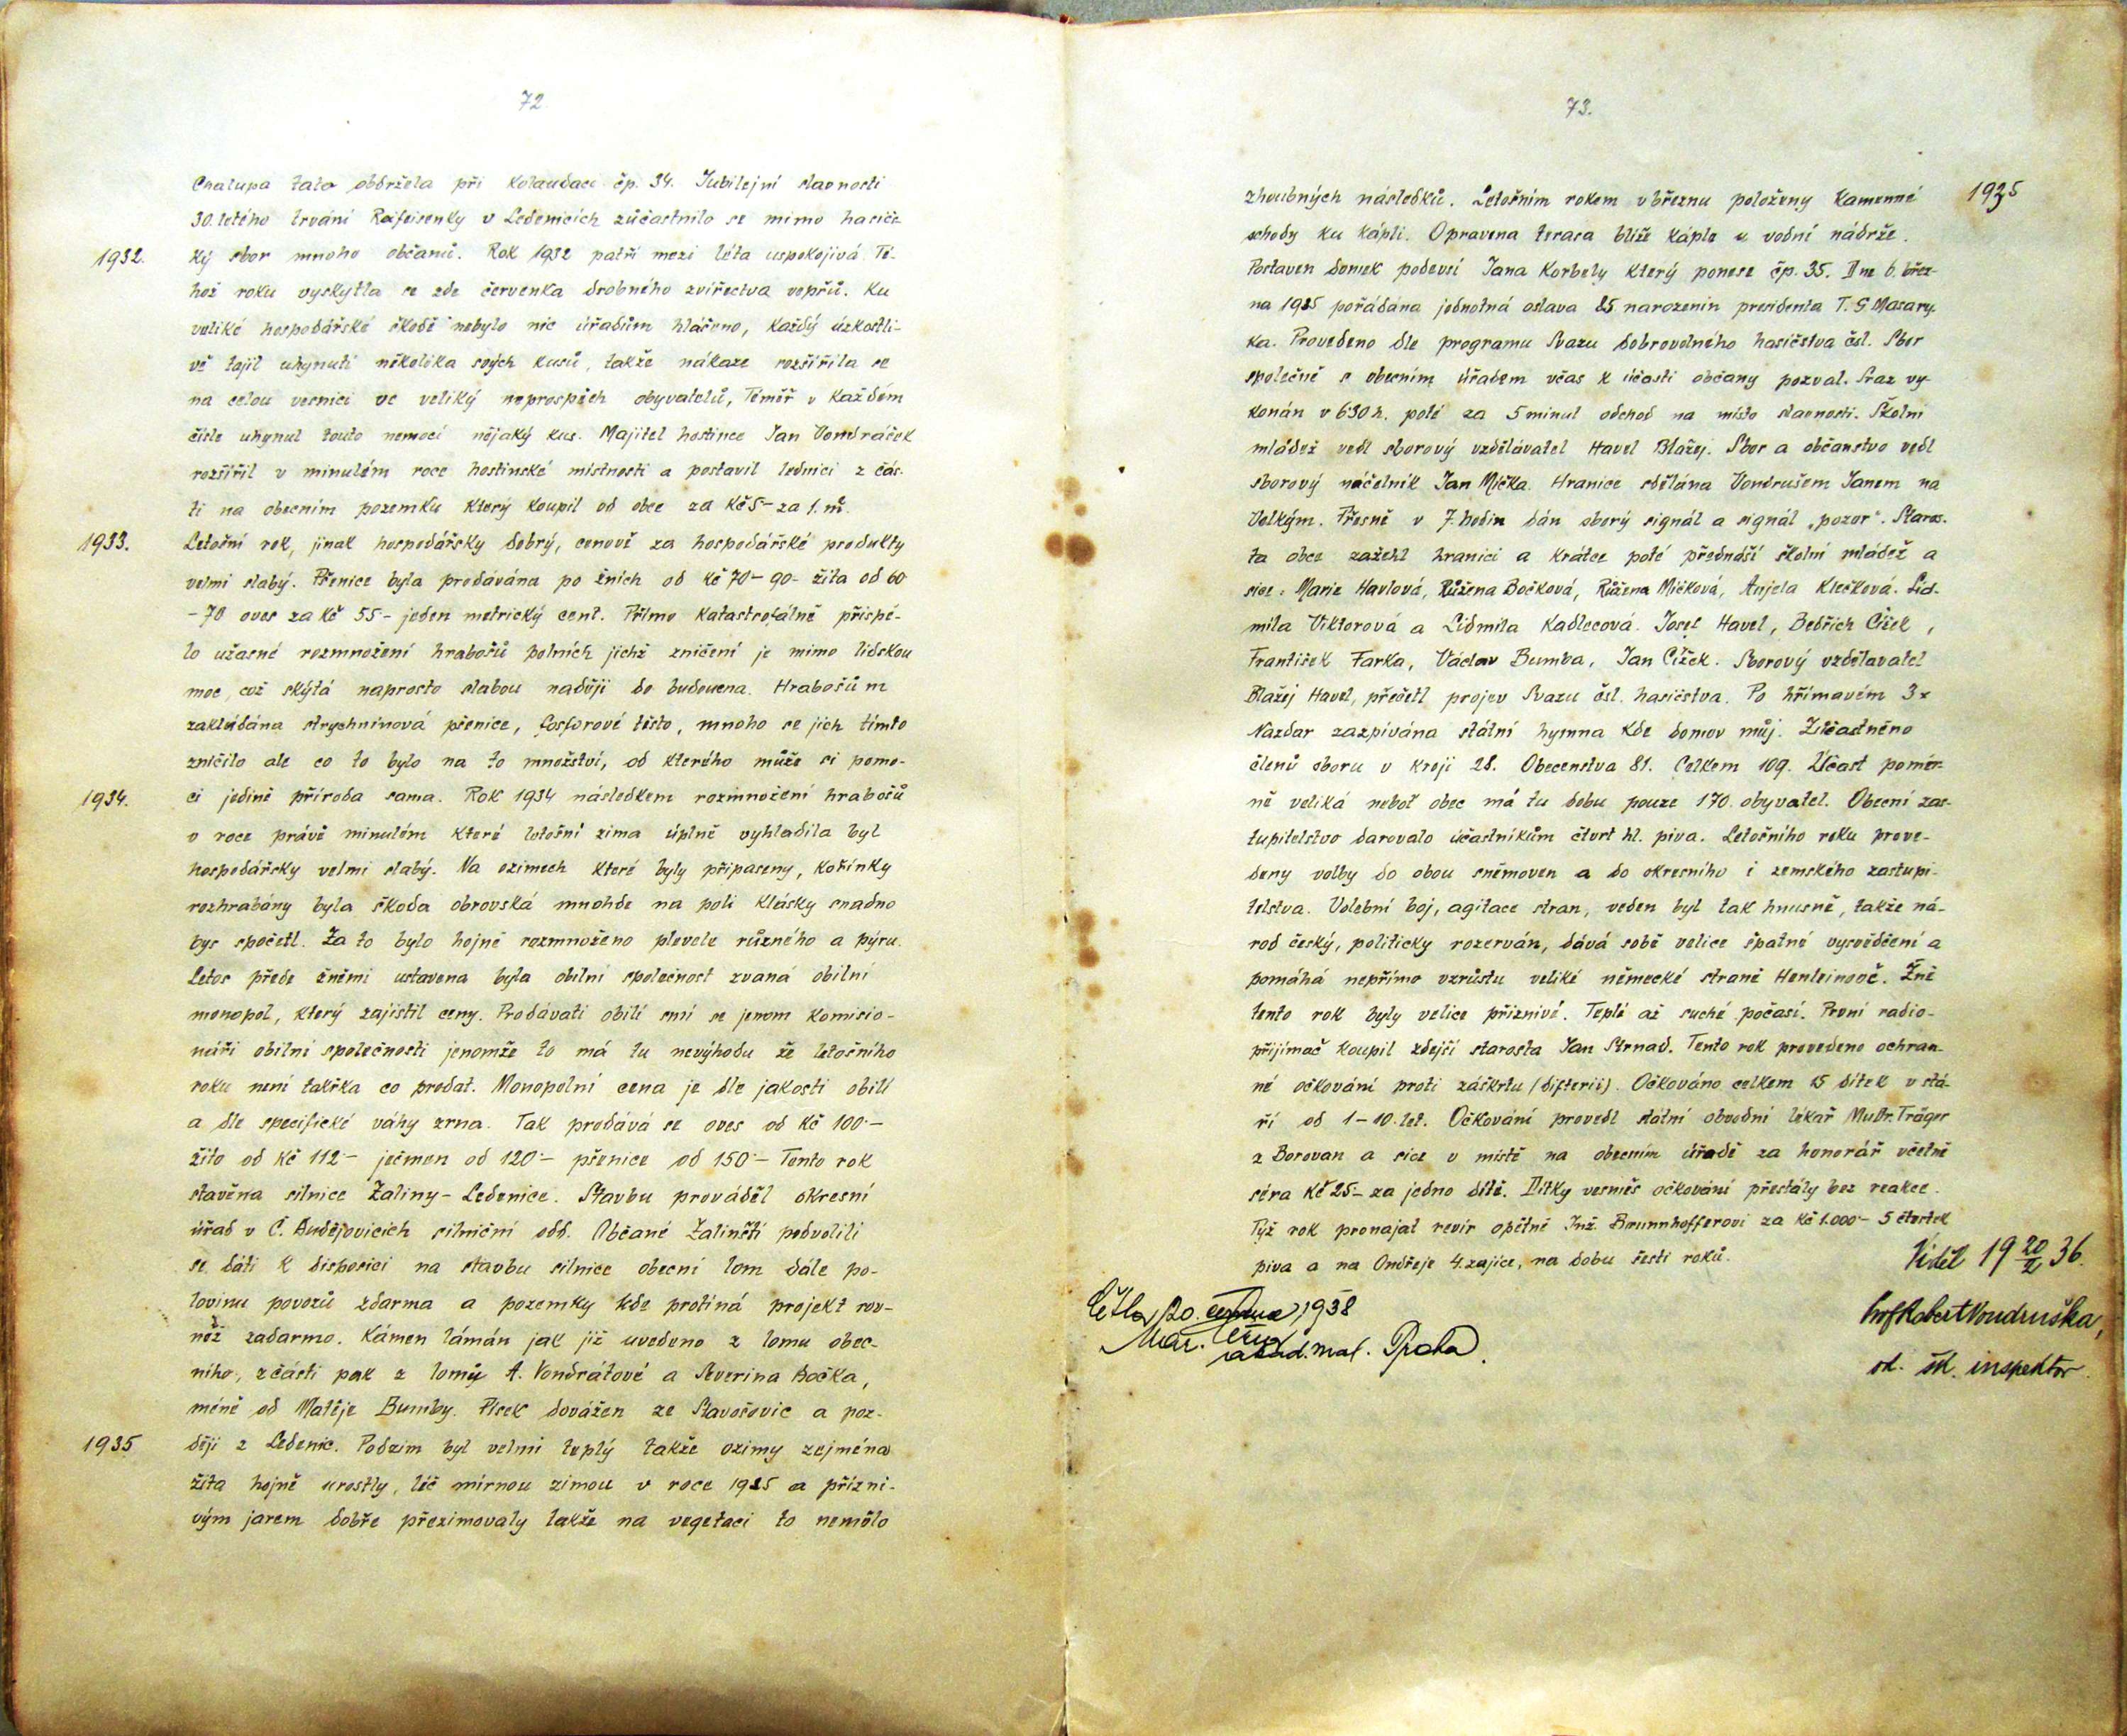 72
Chalupa tato obdržela při kolaudaci čp. 34. Jubilejní slavnosti
30. letého trvání Rafeisenky v Ledenicích zúčastnilo se mimo hasičs
1932.
ký sbor mnoho občanů. Rok 1932 patří mezi léta uspokojivá. Té-
hož roku vyskytla se zde červenka drobného zvířectva vepřů. Ku
veliké hospodářské škodě nebylo nic úřadům hlášeno, každý úzkostli-
vě tajil uhynutí několika svých kusů, takže nákaze rozšířila se
na celou vesnici ve veliký neprospěch obyvatelů, Téměř v každém
čísle uhynul touto nemocí nějaký kus. Majitel hostince Jan Vondráček
rozšířil v minulém roce hostinské místnosti a postavil lednici z čás-
ti na obecním pozemku který koupil od obce za Kč 5- za 1. m².
1933.
Letošní rok, jinak hospodářsky dobrý, cenově za hospodářské produkty
velmi slabý. Pšenice byla prodávána po žních od Kč 70- 90- žita od 60
-70 oves za Kč 55- jeden metrický cent. Přímo katastrofálně přispě-
lo užasné rozmnožení hrabošů polních jichž zničení je mimo lidskou
moc, což skýtá naprosto slabou naději do budoucna. Hrabošům
zakládána strychninová pšenice, fosforové těsto, mnoho se jich tímto
zničilo ale co to bylo na to množství, od kterého může si pomo-
1934.
ci jedině příroda sama. Rok 1934 následkem rozmnožení hrabošů
v roce právě minulém které letošní zima úplně vyhladila byl
hospodářsky velmi slabý. Na ozimech které byly připaseny, kořínky
rozhrabány byla škoda obrovská mnohde na poli klásky snadno
bys spočetl. Za to bylo hojně rozmnoženo plevele různého a pýru.
Letos přede žněmi ustavena byla obilní společnost zvaná obilní
monopol, který zajistil ceny. Prodávati obilí smí se jenom komisio-
náři obilní společnosti jenomže to má tu nevýhodu že letošního
roku není takřka co prodat. Monopolní cena je dle jakosti obilí
a dle specifické váhy zrna. Tak prodává se oves od Kč 100·-
žito od Kč 112·- ječmen od 120·- pšenice od 150·- Tento rok
stavěna silnice Žaliny- Ledenice. Stavbu prováděl okresní
úřad v Č. Budějovicích silniční odd. Občané Žalinští podvolili
se dáti k disposici na stavbu silnice obecní lom dále po-
lovinu povozů zdarma a pozemky kde protíná projekt rov-
něž zadarmo. Kámen lámán jak již uvedeno z lomu obec-
ního, zčásti pak z lomů A. Vondrátové a Severina Bočka,
méně od Matěje Bumby. Písek dovážen ze Slavošovic a poz-
1935
ději z Ledenic. Podzim byl velmi teplý takže ozimy zejména
žita hojně urostly, léč mírnou zimou v roce 1935 a přízni-
vým jarem dobře přezimovaly takže na vegetaci to nemělo
73.
1935
zhoubných následků. Letošním rokem v březnu položeny kamenné
schody ku kápli. Opravena terasa blíže káple u vodní nádrže.
Postaven domek podevsí Jana Korbely který ponese čp. 35. Dne 6. břez-
na 1935 pořádána jednotná oslava 85 narozenin presidenta T. G Masary-
ka. Provedeno dle programu Svazu dobrovolného hasičstva čsl. Sbor
společně s obecním úřadem včas k účasti občany pozval. Sraz vy-
konán v 630 h. poté za 5 minut odchod na místo slavnosti. Školní
mládež vedl sborový vzdělávatel Havel Blažej. Sbor a občanstvo vedl
sborový náčelník Jan Mička. Hranice sdělána Vondrušem Janem na
Velkým. Přesně v 7. hodin dán sborý signál a signál „pozor“. Staros-
ta obce zažehl hranici a krátce poté přednáší školní mládež a
sice: Marie Havlová, Růžena Bočková, Růžena Mičková, Anjela Klečková. Lid-
mila Viktorová a Lidmila Kadlecová. Josef Havel, Bedřich Čížek,
František Farka, Václav Bumba, Jan Čížek. Sborový vzdělavatel
Blažej Havel, přečetl projev Svazu čsl. hasičstva. Po hřímavém 3x
Nazdar zazpívána státní hymna Kde domov můj. Zúčastněno
členů sboru v kroji 28. Obecenstva 81. Celkem 109. Účast poměr-
ně veliká neboť obec má tu dobu pouze 170. obyvatel. Obecní zas-
tupitelstvo darovalo účastníkům čtvrt hl. piva. Letošního roku prove-
deny volby do obou sněmoven a do okresního i zemského zastupi-
telstva. Volební boj, agitace stran, veden byl tak hnusně, takže ná-
rod český, politicky rozerván, dává sobě velice špatné vysvědčení a
pomáhá nepřímo vzrůstu veliké německé straně Henleinově. Žně
tento rok byly velice příznivé. Teplé až suché počasí. První radio-
přijímač koupil zdejší starosta Jan Strnad. Tento rok provedeno ochran-
né očkování proti záškrtu (difterii). Očkováno celkem 15 dítek v stá-
ří od 1-10. let. Očkování provedl státní obvodní lékař Mudr. Träger
z Borovan a sice v místě na obecním úřadě za honorář včetně
séra Kč 25- za jedno dítě. Dítky vesměs očkování přestály bez reakce.
Týž rok pronajat revír opětně Inž. Brunnhofferovi za Kč 1.000·- 5 čtvrtek
piva a na Ondřeje 4. zajíce, na dobu šesti roků.
Viděl 19 20/2 36.
Prof Robert Vondruška,
ok. šk. inspektor.
Četl 20. 1938
akad. mal. Praha.